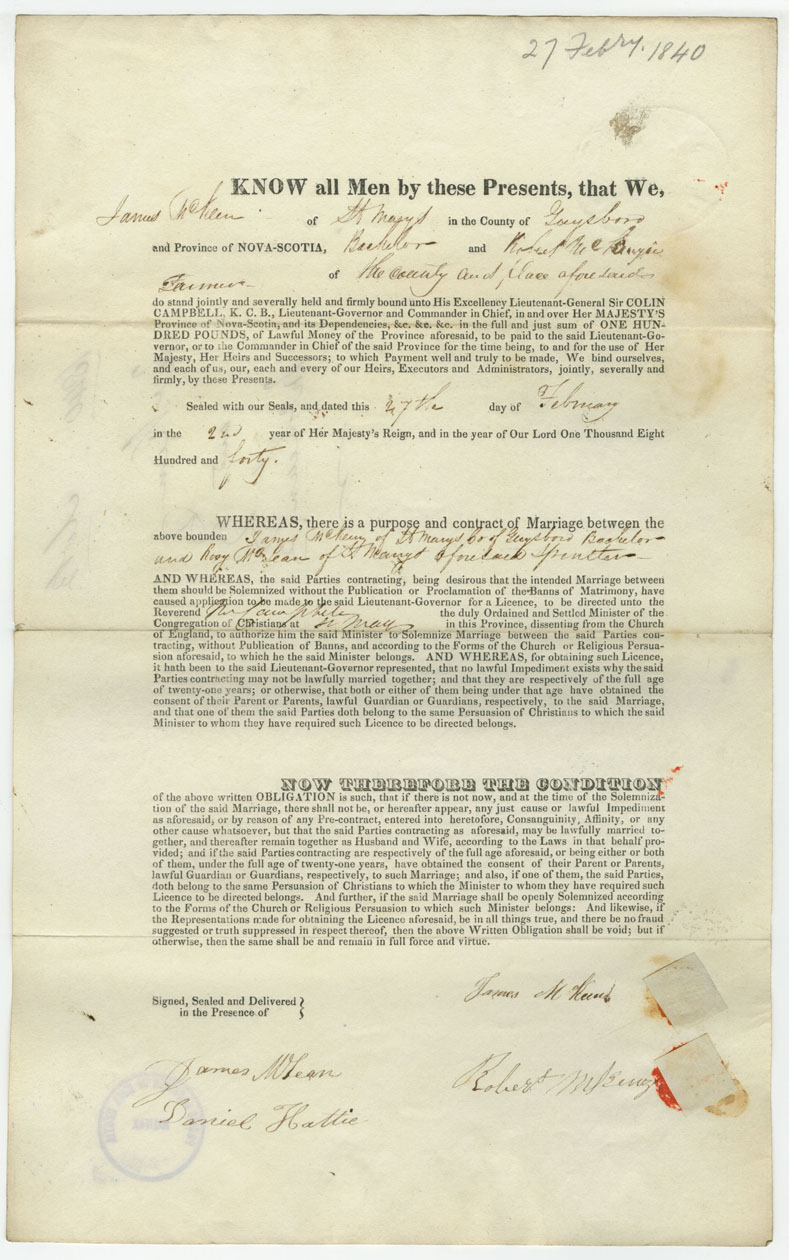 27 Febry. 1840
KNOW all Men by these Presents, that We,
James McKeen of St Marys in the County of Guysboro
and Province of NOVA-SCOTIA, Bachelor and Robert McKenzie
Farmer of the county and place aforesaid
do stand jointly and severally held and firmly bound unto His Excellency Lieutenant-General Sir COLIN
CAMPBELL, K. C. B., Lieutenant-Governor and Commander in Chief, in and over Her MAJESTY'S
Province of Nova-Scotia, and its Dependencies, &c. &c. &c. in the full and just sum of ONE HUN-
DRED POUNDS, of Lawful Money of the Province aforesaid, to be paid to the said Lieutenant-Go-
vernor, or to the Commander in Chief of the said Province for the time being, to and for the use of Her
Majesty, Her Heirs and Successors; to which Payment well and truly to be made, We bind ourselves,
and each of us, our, each and every of our Heirs, Executors and Administrators, jointly, severally and
firmly, by these Presents.
Sealed with our Seals, and dated this 27th day of February
in the 2nd year of Her Majesty's Reign, and in the year of Our Lord One Thousand Eight
Hundred and forty.
WHEREAS, there is a purpose and contract of Marriage between the
above bounden James McKeen of St Marys Co of Guysboro Bachelor
and Rosy McLean of St Marys aforesaid Spinster
AND WHEREAS, the said Parties contracting, being desirous that the intended Marriage between
them should be Solemnized without the Publication or Proclamation of the Banns of Matrimony, have
caused application to be made to the said Lieutenant-Governor for a Licence, to be directed unto the
Reverend Campbell the duly Ordained and Settled Minister of the
Congregation of Christians at St Mary in this Province, dissenting from the Church
of England, to authorize him the said Minister to Solemnize Marriage between the said Parties con-
tracting, without Publication of Banns, and according to the Forms of the Church or Religious Persua-
sion aforesaid, to which he the said Minister belongs. AND WHEREAS, for obtaining such Licence,
it hath been to the said Lieutenant-Governor represented, that no lawful Impediment exists why the said
Parties contracting may not be lawfully married together; and that they are respectively of the full age
of twenty-one years; or otherwise, that both or either of them being under that age have obtained the
consent of their Parent or Parents, lawful Guardian or Guardians, respectively, to the said Marriage,
and that one of them the said Parties doth belong to the same Persuasion of Christians to which the said
Minister to whom they have required such Licence to be directed belongs.
NOW THEREFORE THE CONDITION
of the above written OBLIGATION is such, that if there is not now, and at the time of the Solemniza-
tion of the said Marriage, there shall not be, or hereafter appear, any just cause or lawful Impediment
as aforesaid, or by reason of any Pre-contract, entered into heretofore, Consanguinity, Affinity, or any
other cause whatsoever, but that the said Parties contracting as aforesaid, may be lawfully married to-
gether, and thereafter remain together as Husband and Wife, according to the Laws in that behalf pro-
vided; and if the said Parties contracting are respectively of the full age aforesaid, or being either or both
of them, under the full age of twenty-one years, have obtained the consent of their Parent or Parents,
lawful Guardian or Guardians, respectively, to such Marriage; and also, if one of them, the said Parties,
doth belong to the same Persuasion of Christians to which the Minister to whom they have required such
Licence to be directed belongs. And further, if the said Marriage shall be openly Solemnized according
to the Forms of the Church or Religious Persuasion to which such Minister belongs: And likewise, if
the Representations made for obtaining the Licence aforesaid, be in all things true, and there be no fraud
suggested or truth suppressed in respect thereof, then the above Written Obligation shall be void; but if
otherwise, then the same shall be and remain in full force and virtue.
James McKeen
Signed, Sealed and Delivered
in the Presence of
James McLean
Robert McKenzie
Daniel Hattie